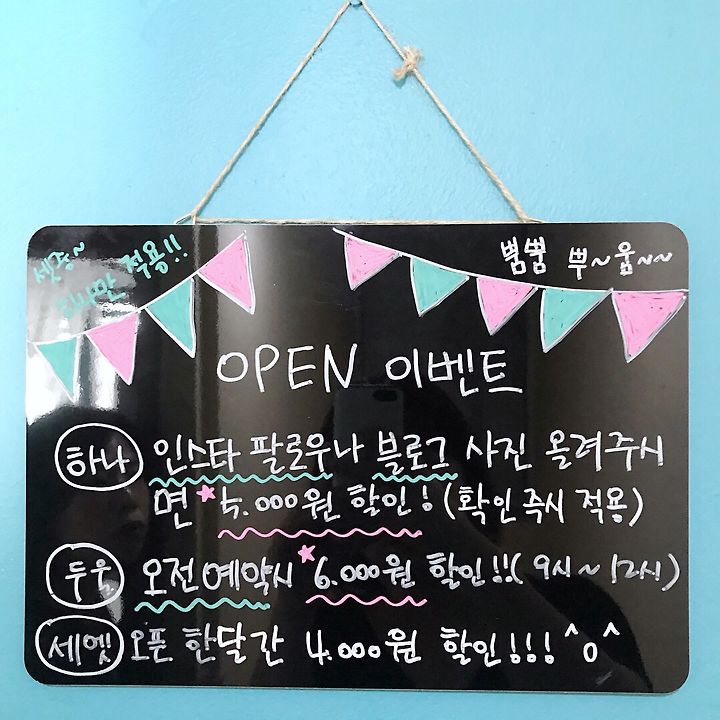 셋중~
하나만 적용!!
뿜뿜 뿌~움~~
OPEN 이벤트
하나 인스타 팔로우나 블로그 사진 올려주시
면 *5.000원 할인! (확인 즉시 적용)
두울 오전예약시 *6.000원 할인!! (9시~12시)
세엣 오픈 한달간 4.000원 할인!!! ^o^